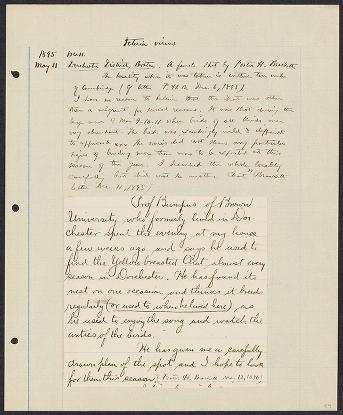 Icteria virens
1895 Mass.
May 11 Dorchester District, Boston. A female shot by Foster H. Brackett
The locality where it was taken is within ten miles
of Cambridge (cf letter F.H.B. Dec. 6, 1895)
I have no reason to believe that the bird was other
than a migrant, for several reasons. It was shot during the
large wave of May 9-10-11 when birds of all kinds were
very abundant. The bird was exceedingly wild & difficult
to approach and the ovaries did not show any particular
signs of breeding more than was to be expected at this
season of the year. I searched the whole locality
carefully but did not see another Chat" Brackett
letter Dec. 11, 1895)
Prof Bumpus of Brown
University, who formerly lived in Dor-
chester spent the evening at my house
a few weeks ago and says he used to
find the Yellow-breasted Chat almost every
season in Dorchester. He has found its
nest on one occasion and thinks it breeds
regularly (or used to when he lived here), as
he used to enjoy the song and watch the
antics of the birds.
He has given me a carefully
drawn plan of the spot and I hope to look
for them this season. Foster H. Brackett May 13, 1896